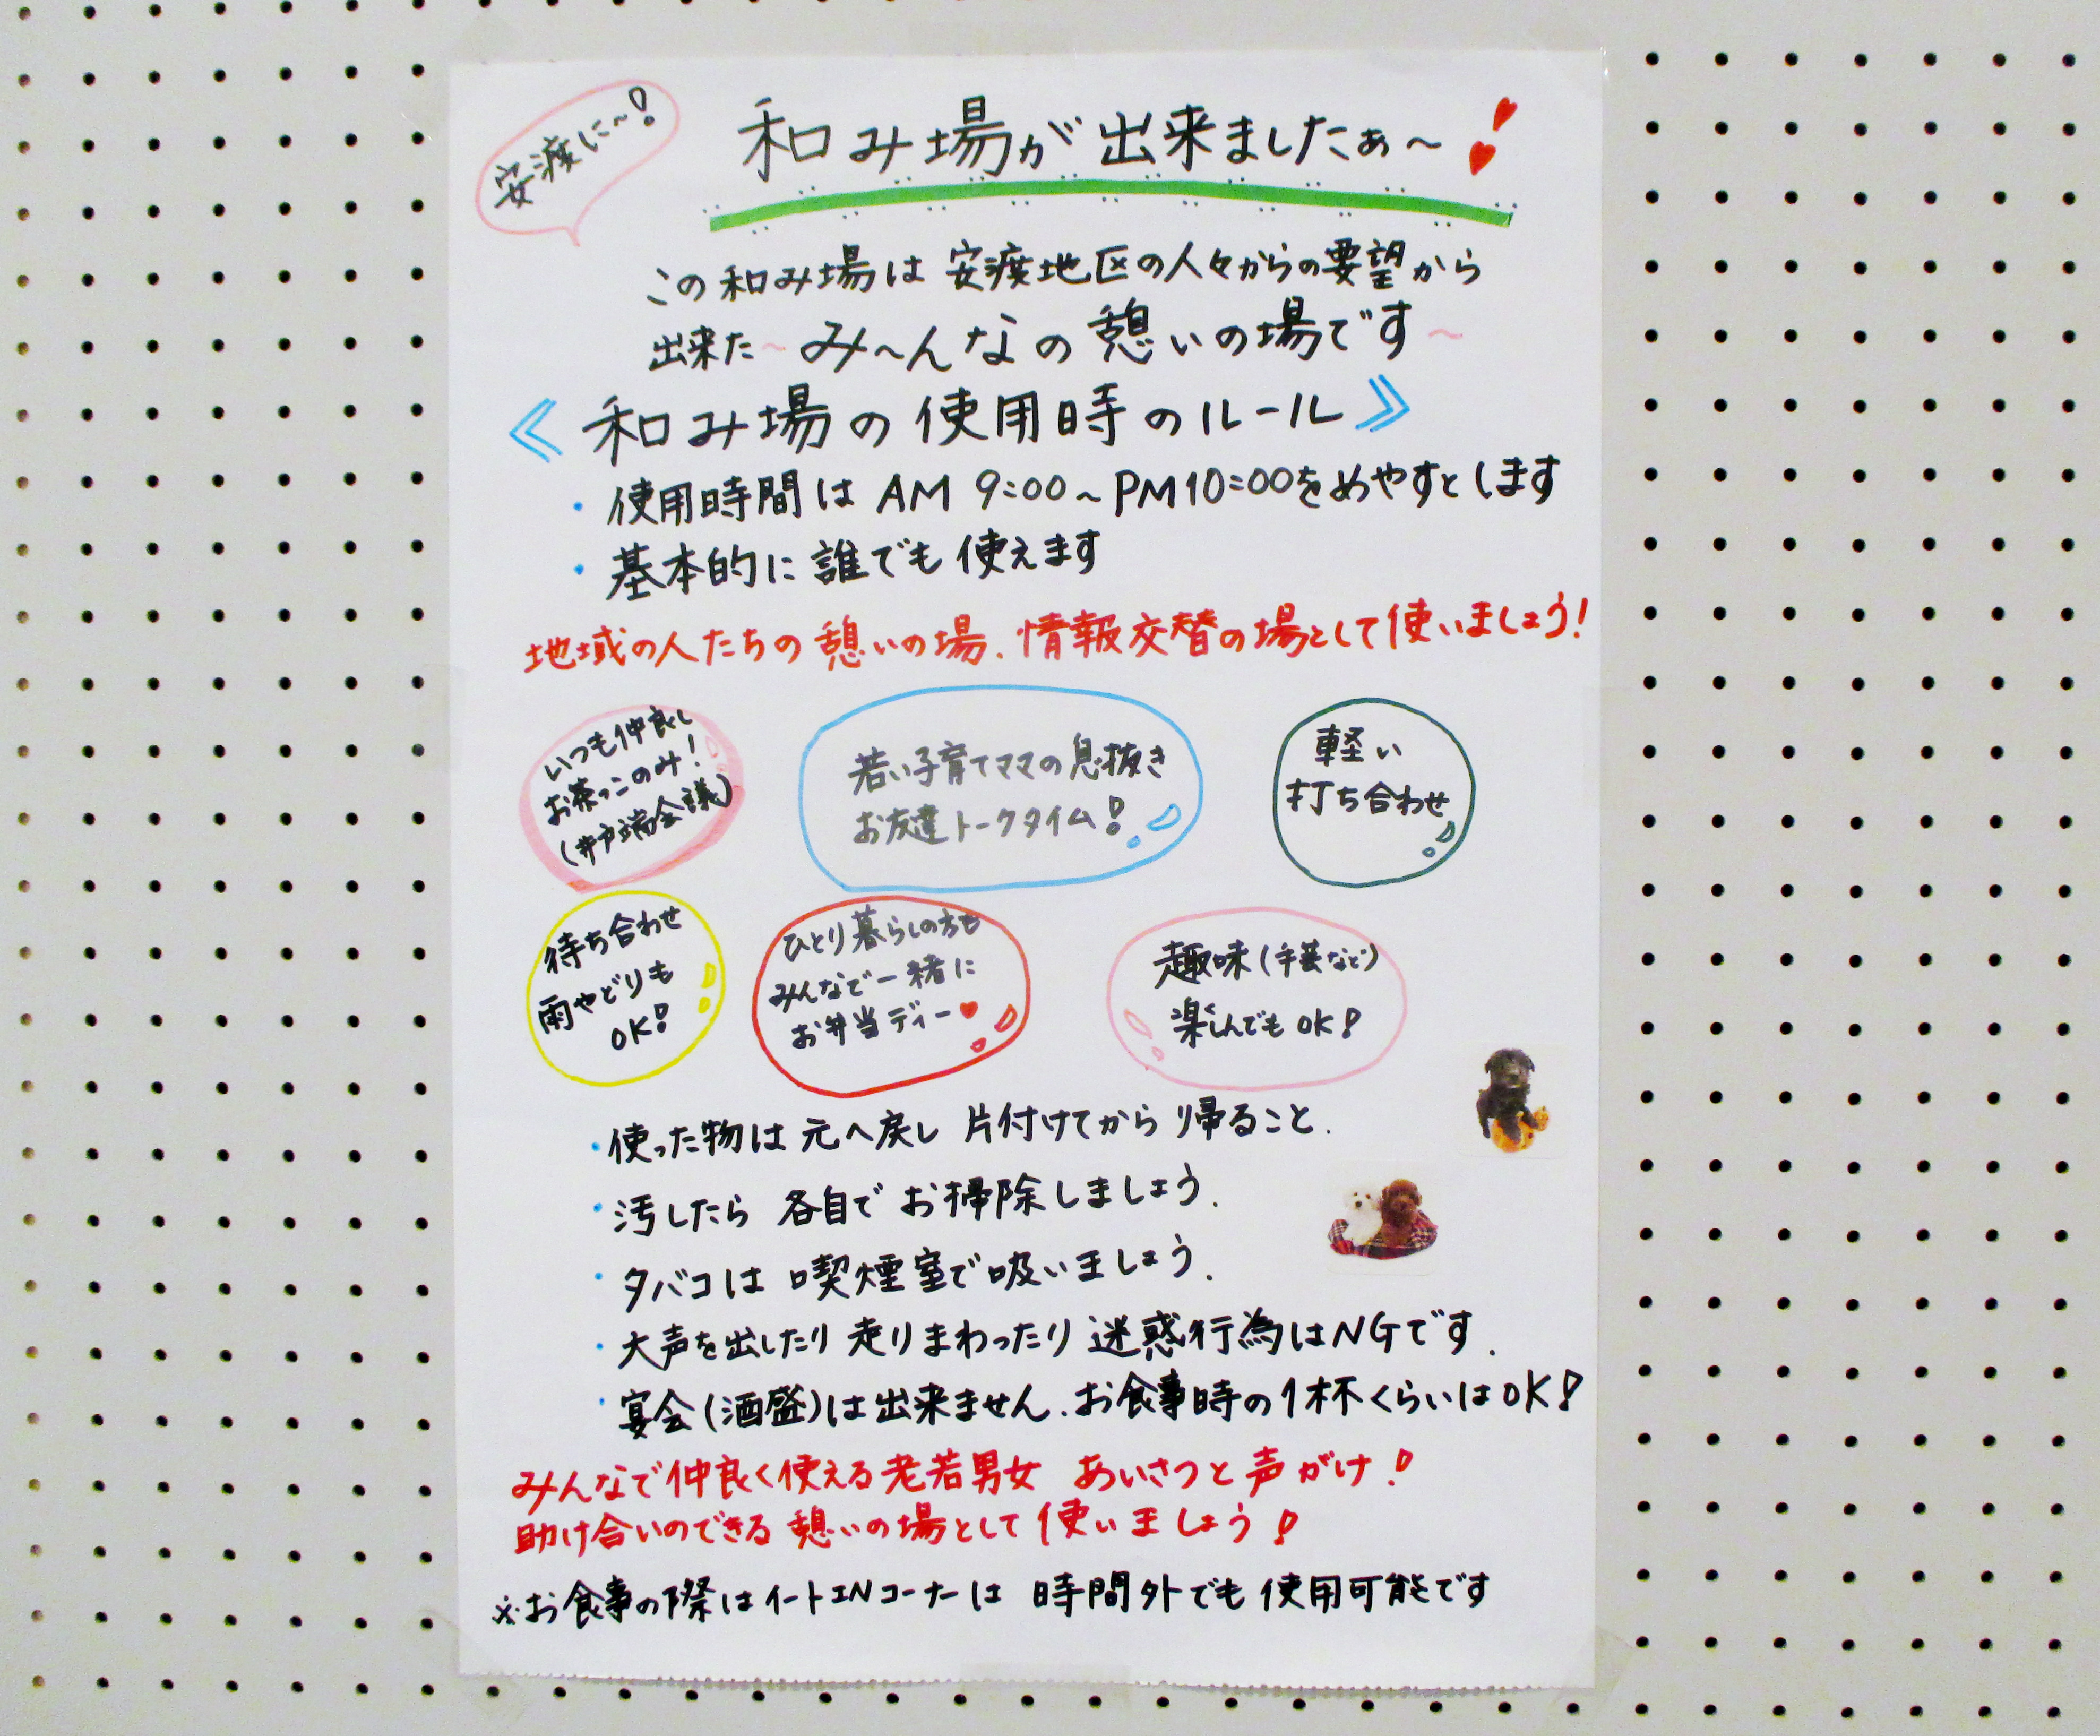 安渡に〜!
和み場が出来ましたぁ〜!
この和み場は安渡地区の人々からの要望から
出来た〜み〜んなの憩いの場です〜
《和み場の使用時のルール》
・使用時間は AM 9:00〜PM10:00をめやすとします
・基本的に誰でも使えます
地域の人たちの憩いの場、情報交替の場として使いましょう!
いつも仲良し
お茶っこのみ!
(井戸端会議)
若い子育てママの息抜き
お友達トークタイム!
軽い
打ち合わせ
待ち合わせ
雨やどりも
OK!
ひとり暮らしの方も
みんなで一緒に
お弁当ディー♥
趣味(手芸など)
楽しんでもOK!
・使った物は元へ戻し 片付けてから帰ること.
・汚したら 各自で お掃除しましょう.
・タバコは 喫煙室で吸いましょう.
・大声を出したり走りまわったり迷惑行為はNGです.
・宴会(酒盛)は出来ません.お食事時の1杯くらいはOK!
みんなで仲良く使える老若男女 あいさつと声がけ!
助け合いのできる憩いの場として使いましょう!
※お食事の際はイートINコーナーは 時間外でも使用可能です